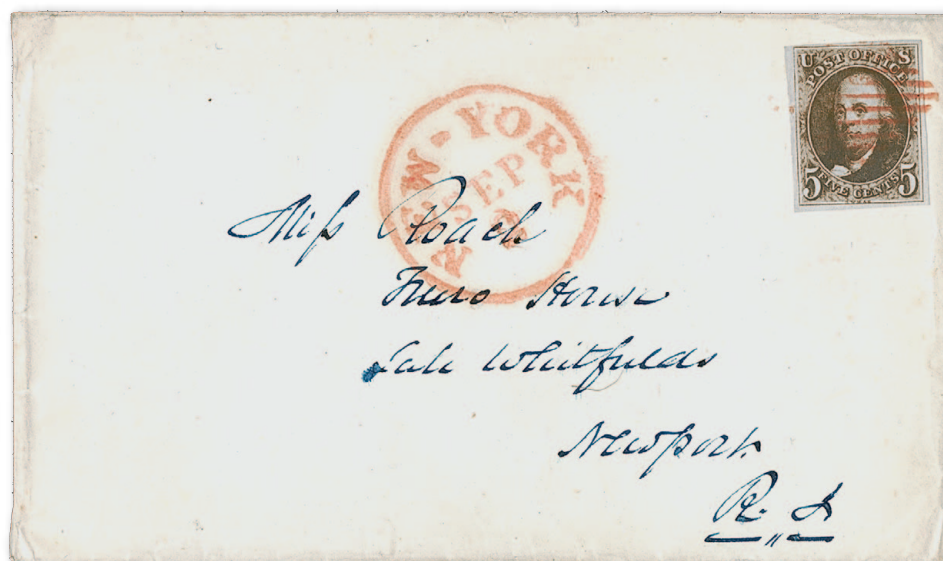 U S
POST OFFICE
5 FIVE CENTS 5
NEW-YORK
SEP
2
Miss Roach
House
Late Whitfields
Newport
R. I